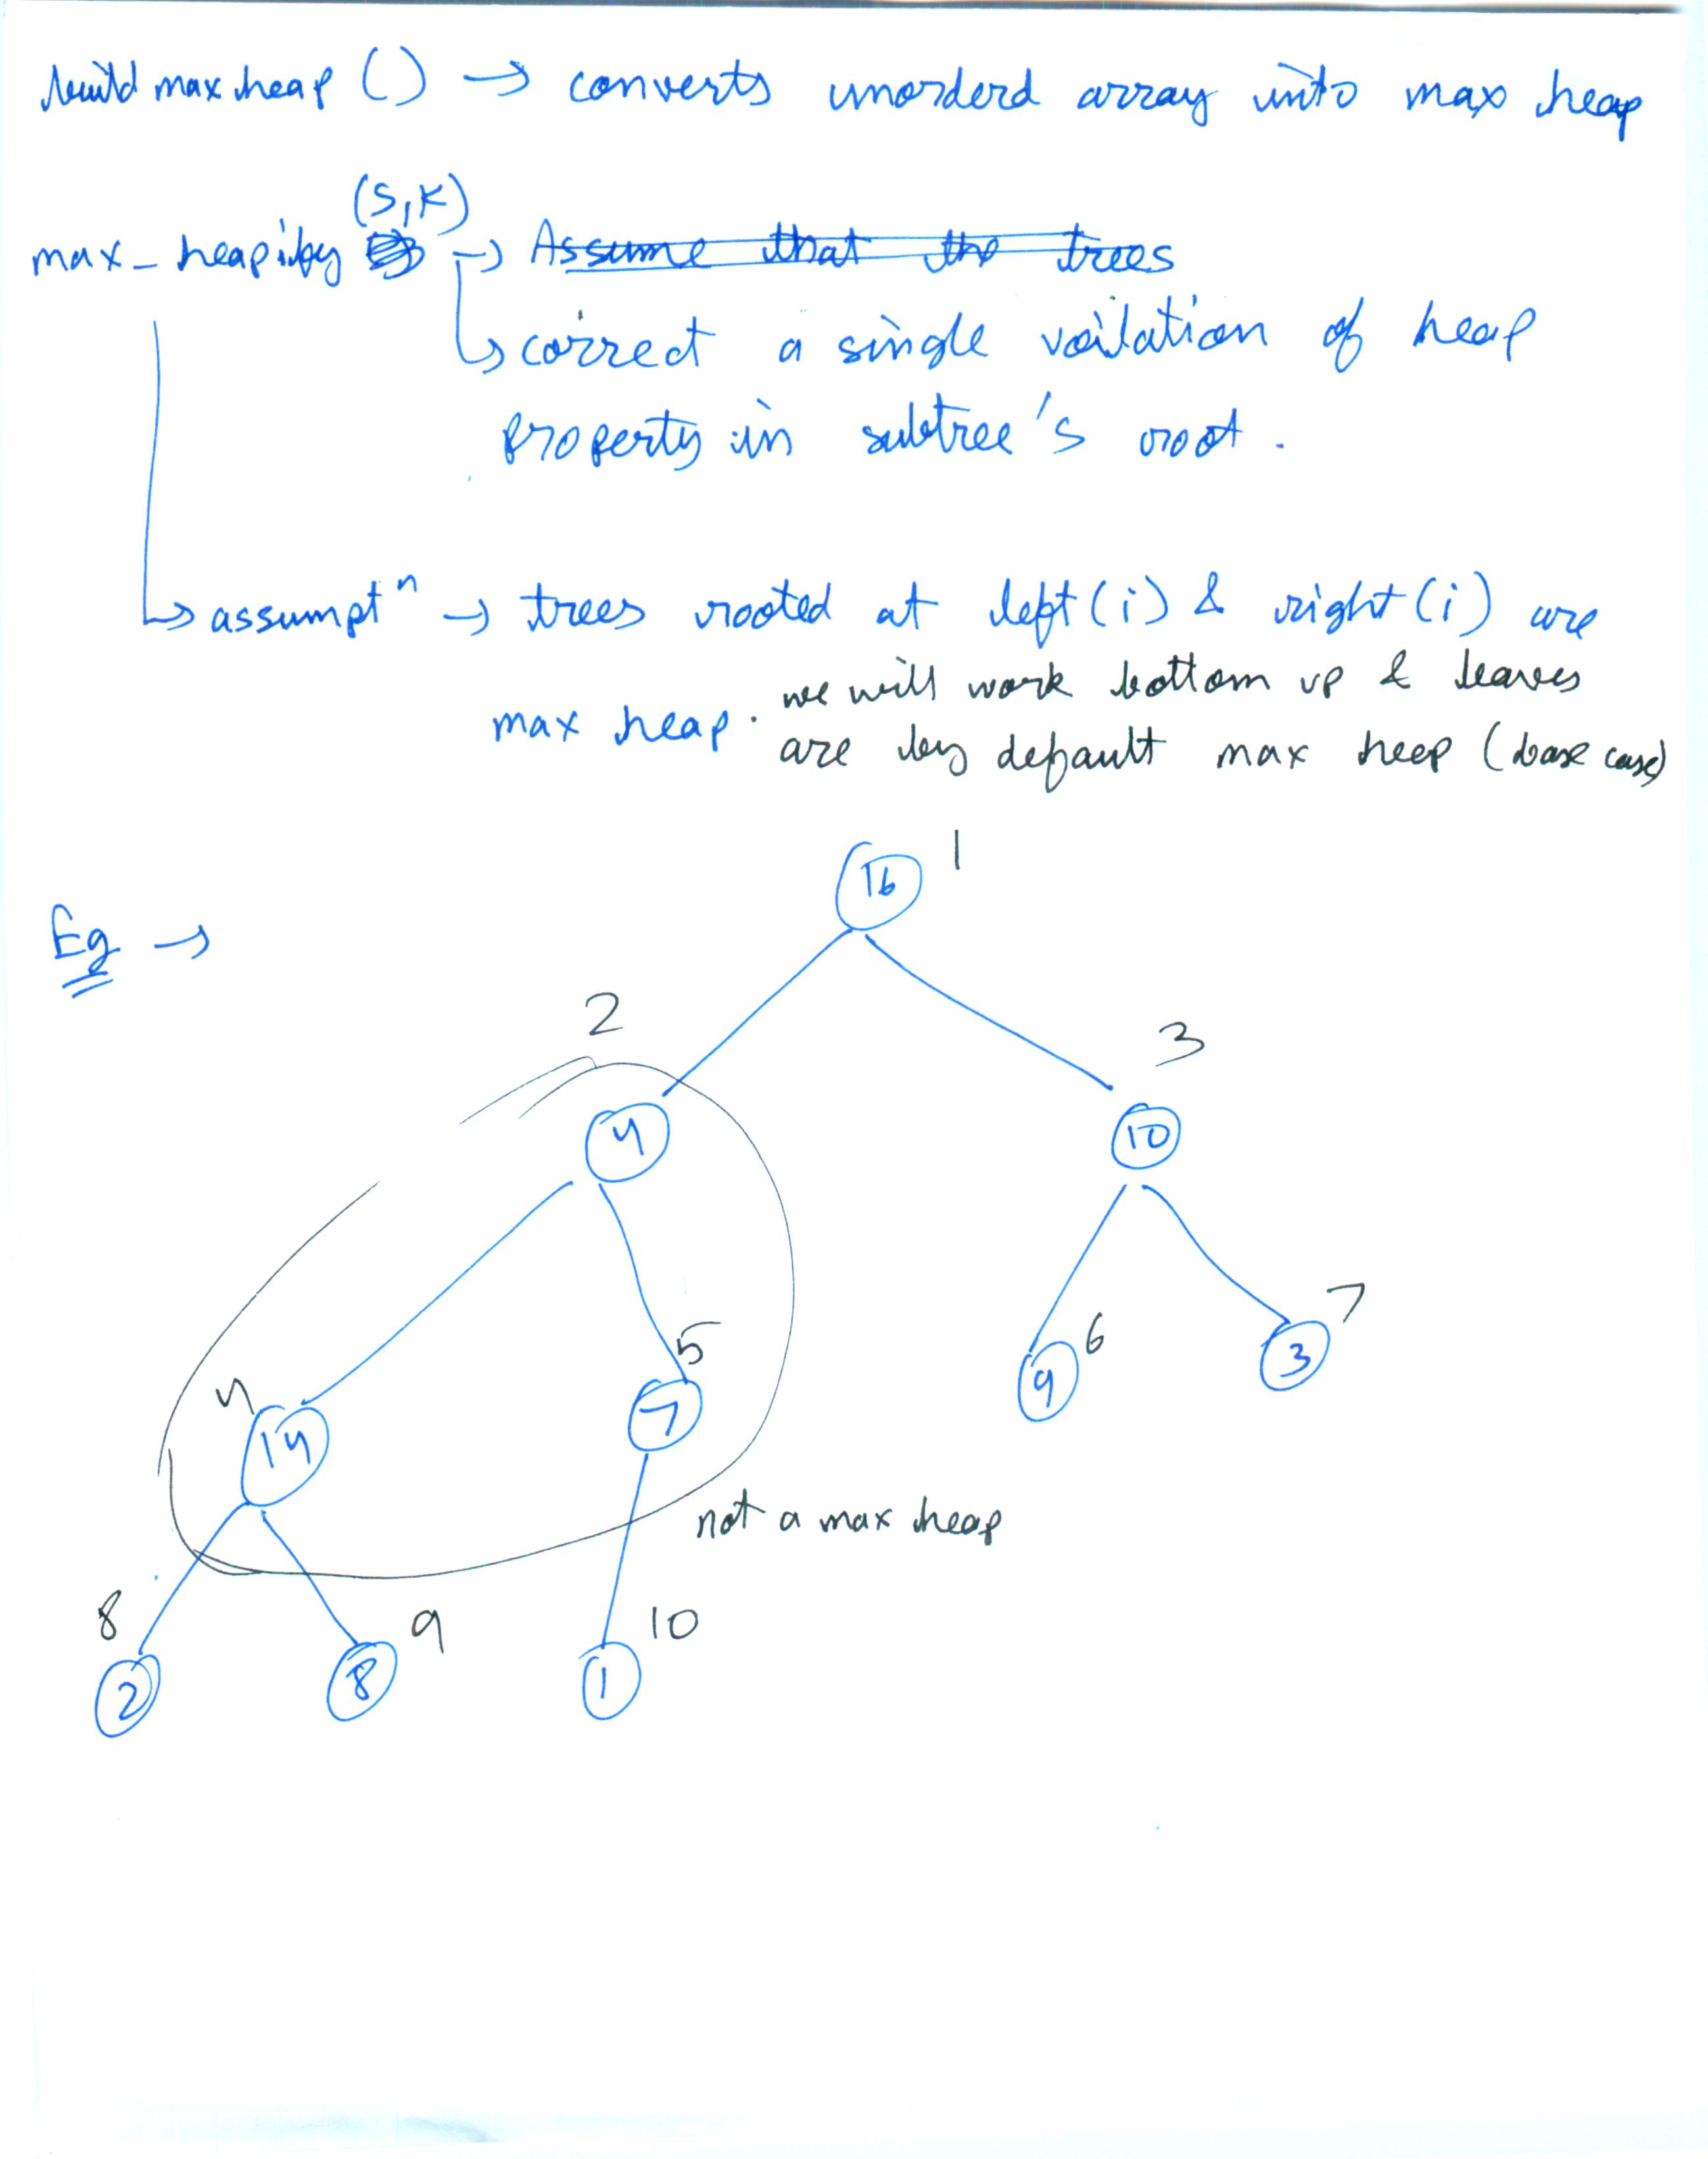 build max heap () → converts unorderd array into max heap
(S, K)
max_heapify → Assume that the trees
↳ correct a single voilation of heap
property in subtree's root.
↳ assumptⁿ → trees rooted at left (i) & right (i) are
max heap. we will work bottom up & leaves
are by default max heep (base case)
16 1
Eg →
2
3
4
10
7
5
6
4
14
7
9
3
not a max heap
8
9
10
2
8
1